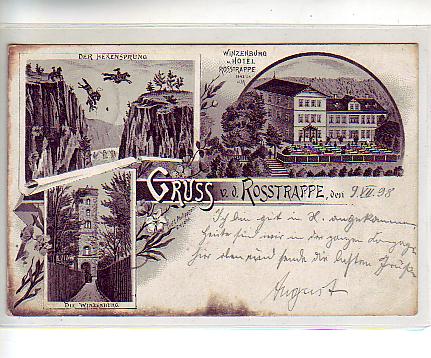 DER HEXENSPRUNG
WINZENBURG
u. HOTEL
ROSSTRAPPE
GRUSS v. d. ROSSTRAPPE, den 9. VII. 98
Ich bin gut in angekommen
heute sind wir in der ganzen
hier oben und sende die besten Grüße
August
DIE WINZENBURG